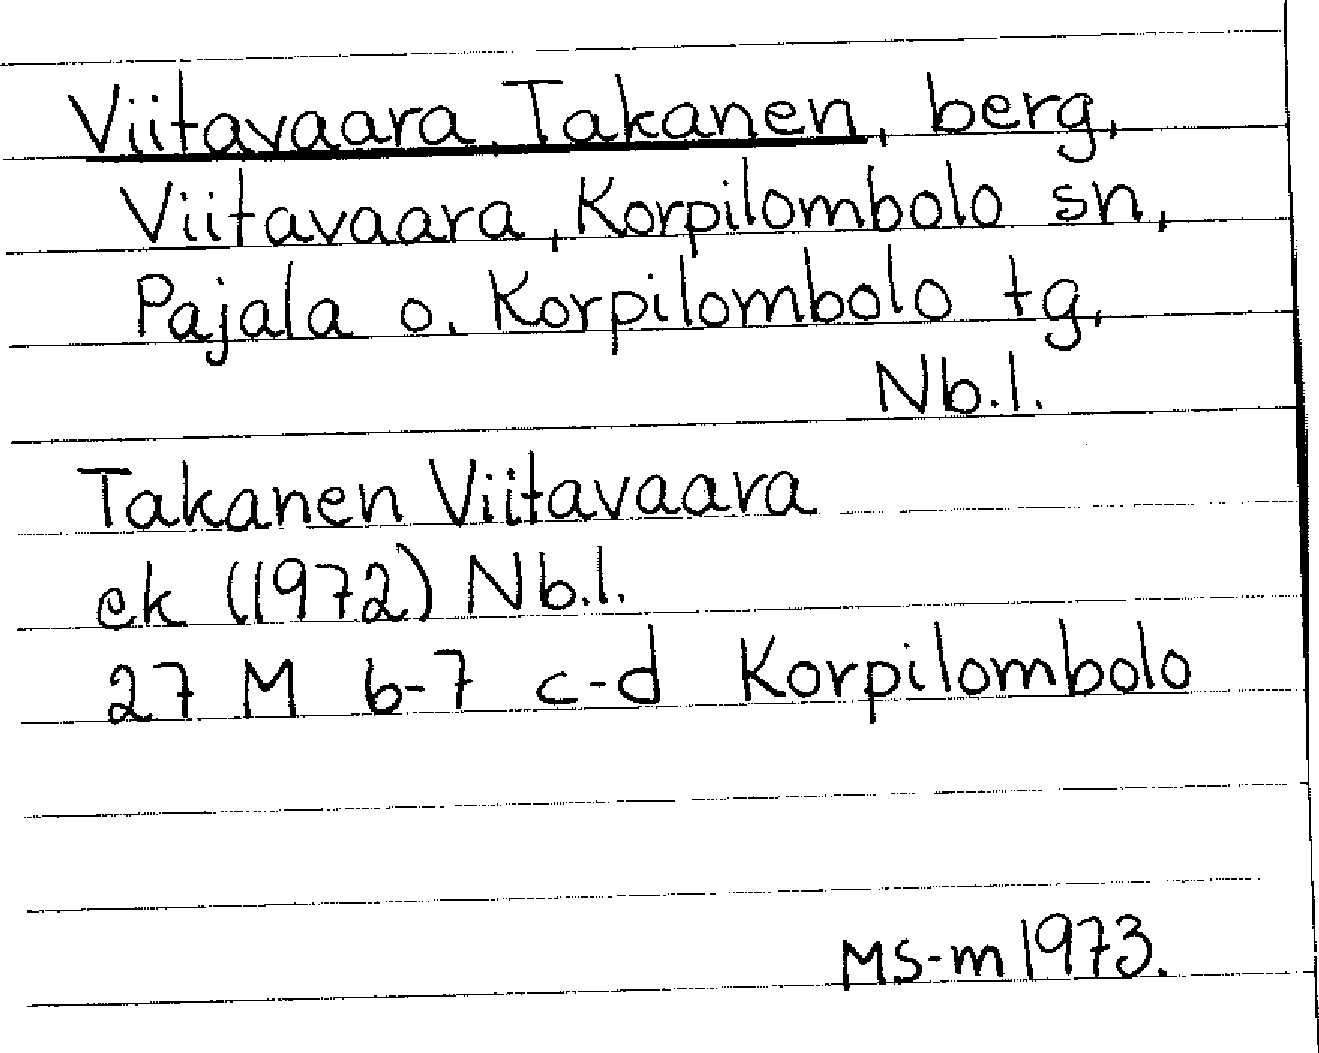 Viitavaara, Takanen, berg,
Viitavaara, Korpilombolo sn,
Pajala o. Korpilombolo tg,
Nb.l.
Takanen Viitavaara
ek (1972) Nb.l.
27 M 6-7 c-d Korpilombolo
MS-m 1973.